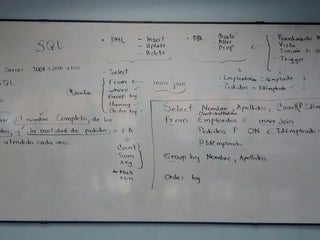 SQL
Server 2008 y 2010 y 2012
• DML - Insert
- Update
- Delete
• DDL - Create
- Alter
- Drop
Procedimiento
Vista
Trigger
- Select
From
where
Group by
Having
Order by
inner join
- Empleados - IdEmpleado
Pedidos - IdEmpleado
el nombre Completo, de los
y la cantidad de pedidos,
atendido cada uno.
Count
Sum
Avg
Max
Min
Select Nombre, Apellidos, Count(P.IdEmpleado)
From Empleados E inner Join
Pedidos P ON E.IDEmpleado =
P.IdEmpleado
Group by Nombre, Apellidos
Order by